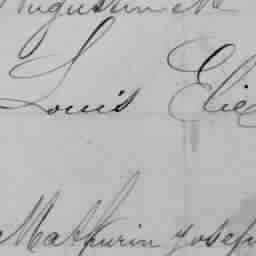 Augustin M
Louis Elie
Mathurin Joseph